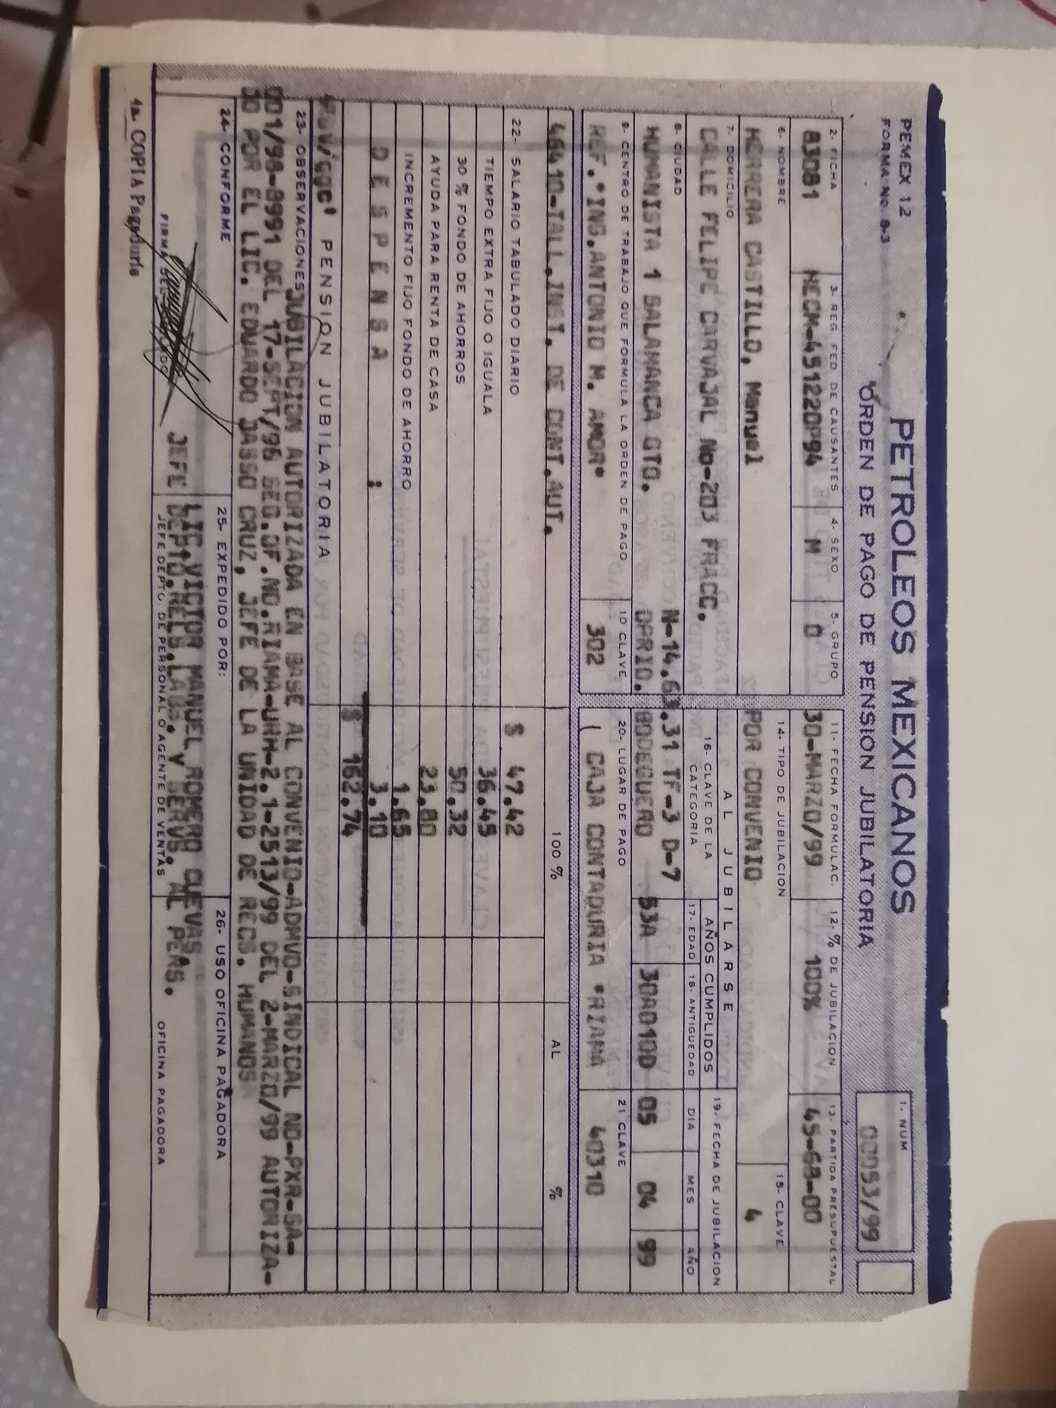 PEMEX 12
FORMA No. 8-3
PETROLEOS MEXICANOS
ORDEN DE PAGO DE PENSION JUBILATORIA
1. NUM
00053/99
2. FICHA
3. REG. FED. DE CAUSANTES
4. SEXO
5. GRUPO
11. FECHA FORMULAC.
12. % DE JUBILACION
13. PARTIDA PRESUPUESTAL
83081
HECM-451220P94
M
O
30-MARZO/99
100%
45-68-00
6. NOMBRE
14. TIPO DE JUBILACION
15. CLAVE
HERRERA CASTILLO, Manuel
POR CONVENIO
4
7. DOMICILIO
AL JUBILARSE
16. CLAVE DE LA CATEGORIA
AÑOS CUMPLIDOS
17. EDAD
18. ANTIGUEDAD
19. FECHA DE JUBILACION
DIA
MES
AÑO
CALLE FELIPE CARVAJAL No-203 FRACC.
8. CIUDAD
N-14.63.31 TF-3 D-7
HUMANISTA 1 SALAMANCA GTO.
OPRIO. BODEGUERO
53A
30A010D
05
04
99
9. CENTRO DE TRABAJO QUE FORMULA LA ORDEN DE PAGO
10 CLAVE
20. LUGAR DE PAGO
21 CLAVE
REF."ING.ANTONIO M. AMOR"
302
( CAJA CONTADURIA "RIAMA
40310
46410-TALL.INST. DE CONT.AUT.
100 %
AL
%
22- SALARIO TABULADO DIARIO
$ 47.42
TIEMPO EXTRA FIJO O IGUALA
36.45
30 % FONDO DE AHORROS
50.32
AYUDA PARA RENTA DE CASA
23.80
INCREMENTO FIJO FONDO DE AHORRO
1.65
D E S P E N S A :
3.10
PENSION JUBILATORIA
$ 162.74
23- OBSERVACIONES JUBILACION AUTORIZADA EN BASE AL CONVENIO-ADMVO-SINDICAL NO-PXR-SA-
001/98-8991 DEL 17-SEPT/98 SEG.OF.NO.RIAMA-URH-2.1-2513/99 DEL 2-MARZO/99 AUTORIZA-
DO POR EL LIC. EDUARDO JASSO CRUZ, JEFE DE LA UNIDAD DE RECS. HUMANOS
24- CONFORME
25- EXPEDIDO POR:
26- USO OFICINA PAGADORA
LIC.VICTOR MANUEL ROMERO CUEVAS
JEFE DEPTO.RELS.LABS. Y SERVS. AL PERS.
JEFE DEPTO. DE PERSONAL O AGENTE DE VENTAS
OFICINA PAGADORA
4a. COPIA Pagaduría